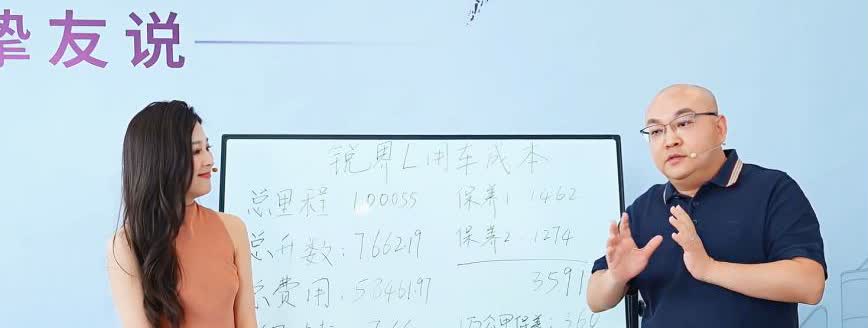 挚友说
锐界L用车成本
总里程 100055 保养1 1462
总升数:766219 保养2 1274
总费用:5846197 3591
1万公里保养:360